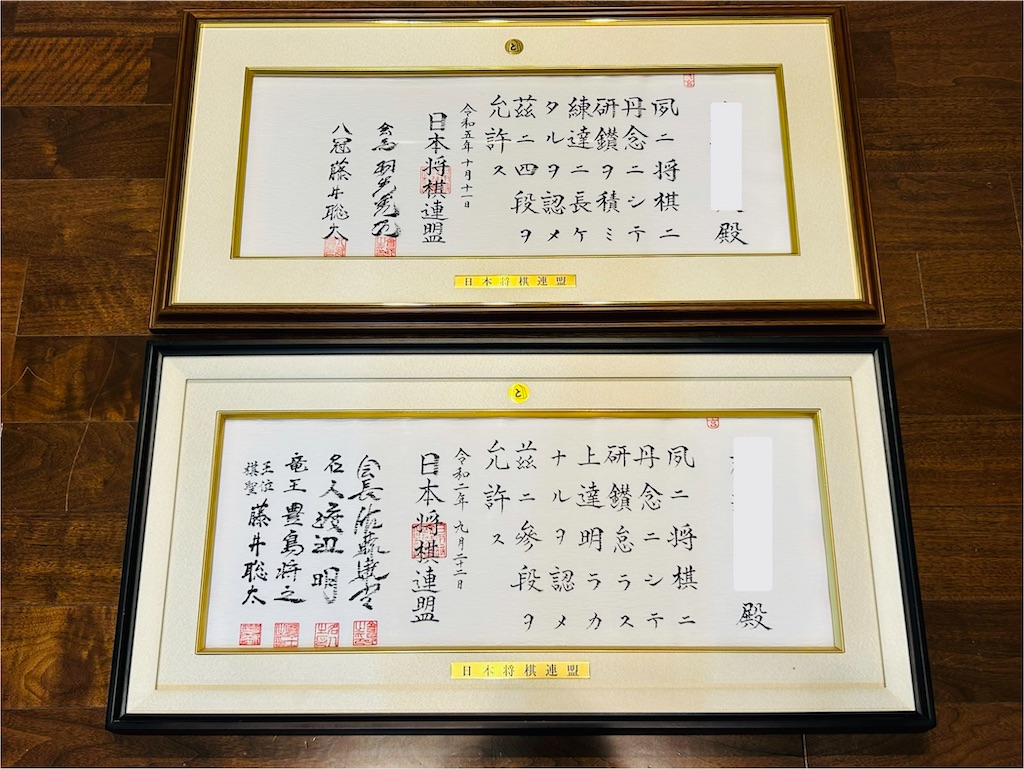 殿
夙ニ将棋ニ
丹念ニシテ
研鑽ヲ積ミ
練達ニ長ケ
タルヲ認メ
茲ニ四段ヲ
允許ス
令和五年十月十一日
日本将棋連盟
会長 羽生善治
八冠 藤井聡太
日本将棋連盟
殿
夙ニ将棋ニ
丹念ニシテ
研鑽怠ラス
上達明ラカ
ナルヲ認メ
茲ニ参段ヲ
允許ス
令和二年九月二十二日
日本将棋連盟
会長 佐藤康光
名人 渡辺明
竜王 豊島将之
王位
棋聖 藤井聡太
日本将棋連盟